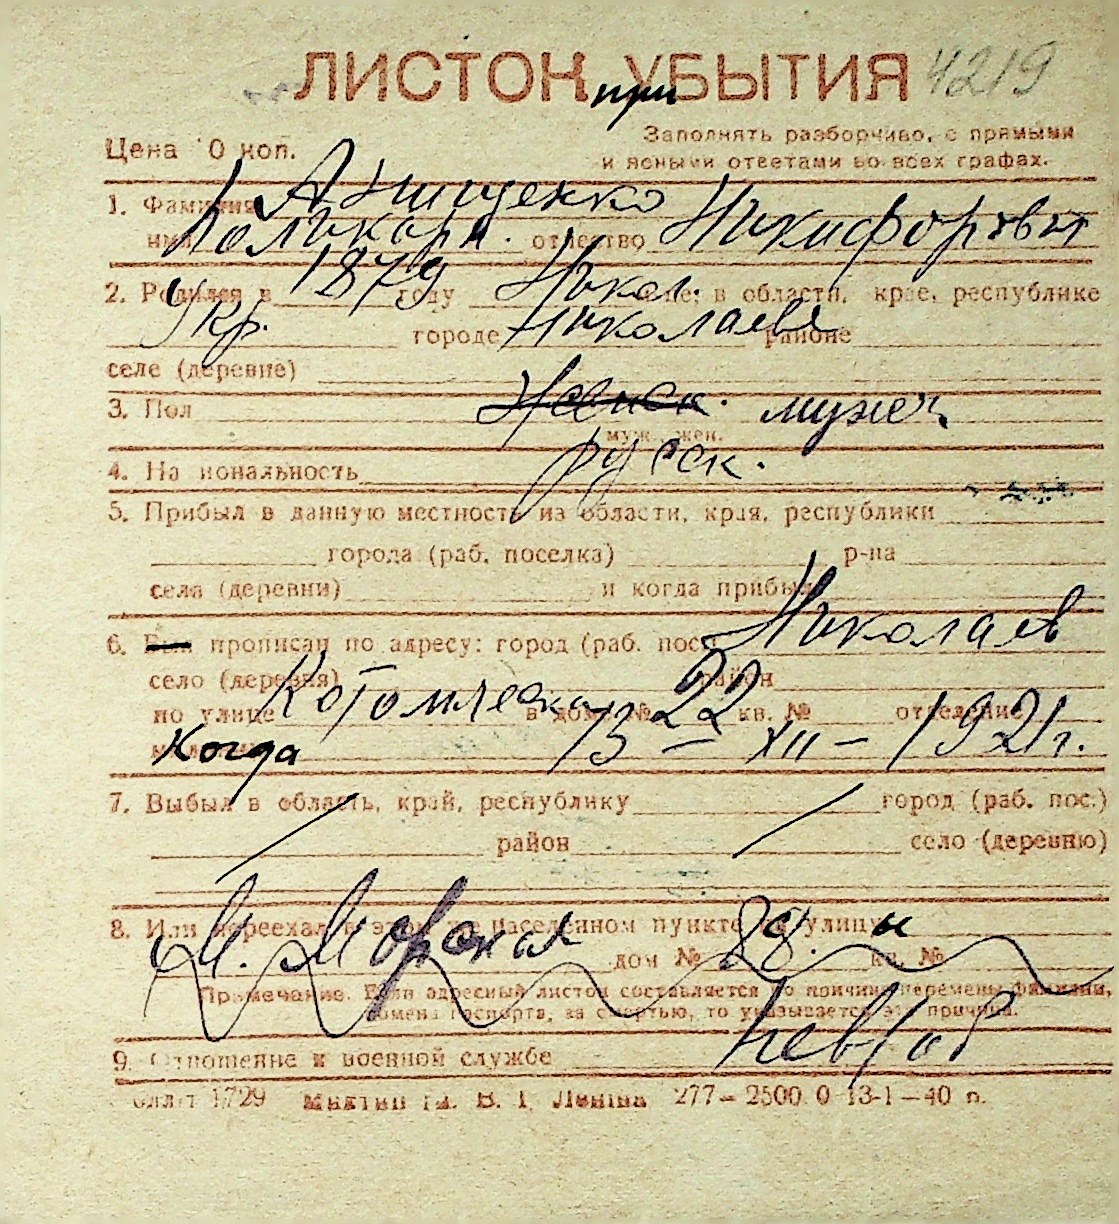 ЛИСТОК при УБЫТИЯ 4219
Цена 0 коп.
Заполнять разборчиво, с прямыми
и ясными ответами во всех графах.
1. Фамилия Анищенко
имя Поликарп. отчество Никифорович
2. Родился в 1879 году Никол. в области, крае, республике
Укр. городе Николаеве районе
селе (деревне)
3. Пол Женск. мужск.
муж. жен.
4. Национальность русск.
5. Прибыл в данную местность из области, края, республики
города (раб. поселка) р-на
села (деревни) и когда прибыл
6. Был прописан по адресу: город (раб. пос.) Николаев
село (деревня) район
по улице в доме № 22 кв. № отделение
когда 13 – XII – 1921 г.
7. Выбыл в область, край, республику город (раб. пос.)
район село (деревню)
8. Или переехал в этом же населенном пункте на улицу
М. Морская дом № 88. кв. №
Примечание. Если адресный листок составляется по причине перемены фамилии,
обмена паспорта, за смертью, то указывается эта причина.
9. Отношение к военной службе
1729 В. І. Леніна 277–2500.0 13-1–40 п.